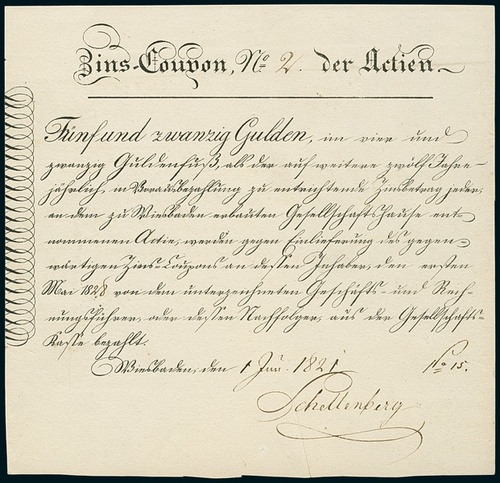 Zins-Coupon, No 2. der Actien.
Fünf und zwanzig Gulden, im vier und
zwanzig Guldenfuß, als der auf weitere zwölf Jahre
jährlich, in Vorausbezahlung zu entrichtende Zinsbetrag jeder,
an dem zu Wiesbaden erbauten Gesellschaftshause ent-
nommenen Actie, werden gegen Einlieferung des gegen-
wärtigen Zins-Coupons an dessen Inhaber, den ersten
Mai 1828 von dem unterzeichneten Geschäfts- und Rech-
nungsführer, oder dessen Nachfolger, aus der Gesellschafts-
Kasse bezahlt.
Wiesbaden, den 1 Jun. 1821 No 15.
Schellenberg